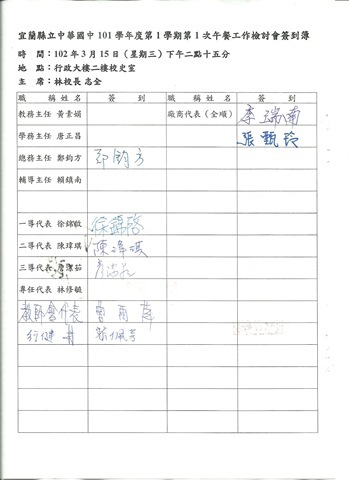 宜蘭縣立中華國中 101 學年度第 1 學期第 1 次午餐工作檢討會簽到簿
時　間：102 年 3 月 15 日（星期三）下午二點十五分
地　點：行政大樓二樓校史室
主　席：林校長 志全
職　稱 姓 名　簽　到　職　稱 姓 名　簽　到
教務主任 黃素娟　廠商代表（全順）　李瑞南
學務主任 唐正昌　張甄玲
總務主任 鄭鈞方　鄭鈞方
輔導主任 賴鎮南
一導代表 徐錦敏　徐錦
二導代表 陳瑋琪　陳瑋琪
三導代表
專任代表 林修毓
教師會代表　曾雨